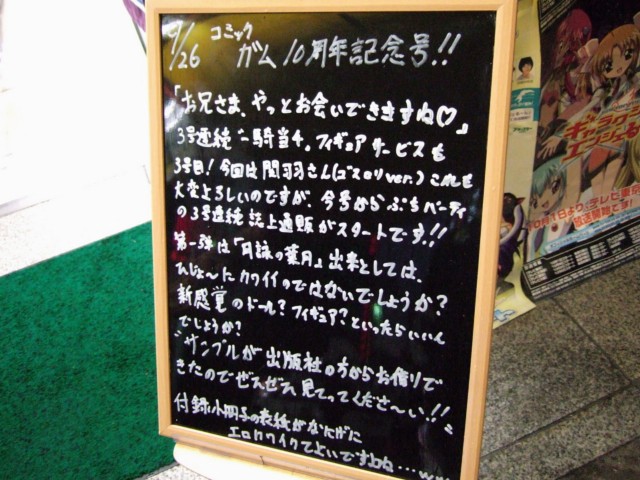 9/26 コミックガム10周年記念号!!
「お兄さま、やっとお会いできますね♡」
3号連続一騎当千、フィギュアサービスも
3号目!今回は関羽さん(ゴスロリver.)これも
大変よろしいのですが、今号からぷちパーティ
の3号連続誌上通販がスタートです!!
第一弾は「月詠の葉月」出来としては、
ひじょ〜にカワイイのではないでしょうか?
新感覚のドール?フィギュア?といったらいいん
でしょうか?
サンプルが出版社の方からお借りで
きたのでぜひぜひ見てってくださ〜い!!
付録小冊子の表紙がなにげに
エロカワイクてよいですねね…ww
ギャラクシー
エンジェる
10月1日より、テレビ東
放送開始でーす!